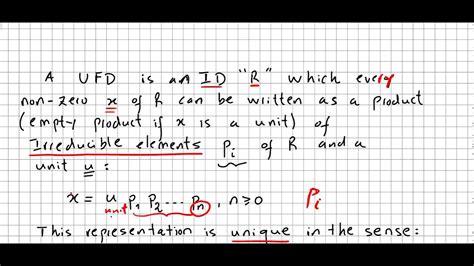 A UFD is an ID "R" which every
non-zero x of R can be written as a product
(empty product if x is a unit) of
Irreducible elements pi of R and a
unit u :
x = u p1 p2 ... pn , n ≥ 0 Pi
unit
This representation is unique in the sense: